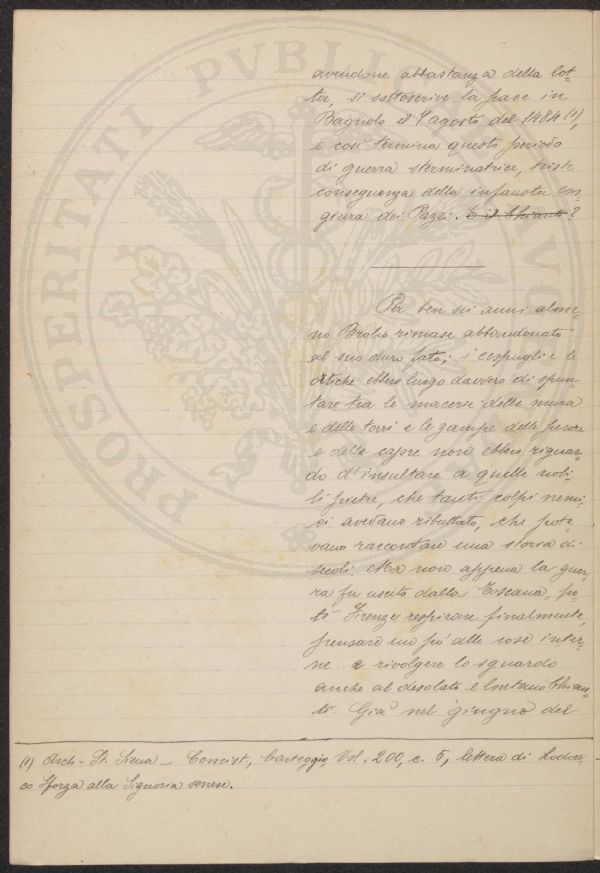 avendone abbastanza della lot-
ta, si sottoscrive la pace in
Bagnolo il 7 agosto del 1484 (1),
e così termina questo periodo
di guerra sterminatrice, triste
conseguenza della infausta con-
giura dei Pazzi. E il Chianti?
Per ben sei anni alme-
no Brolio rimase abbandonato
al suo duro fato; i cespugli e le
ortiche ebbero luogo davvero di spun-
tare tra le macerie delle mura
e delle torri e le zampe delle pecore
e delle capre non ebbero riguar-
do d'insultare a quelle nobi-
li pietre, che tanti colpi nemi-
ci avevano ributtato, che pote-
vano raccontare una storia di
secoli. Ma non appena la guer-
ra fu uscita dalla Toscana, po-
tè Firenze respirare finalmente,
pensare un pó alle cose inter-
ne e rivolgere lo sguardo
anche al desolato e lontano Chian-
ti. Già nel giugno del
(1) Arch. St. Siena - Concist., Carteggio, Vol. 200, c. 5, lettera di Lodovi-
co Sforza alla Signoria senese.
PROSPERITATI PVBLICAE NOVO